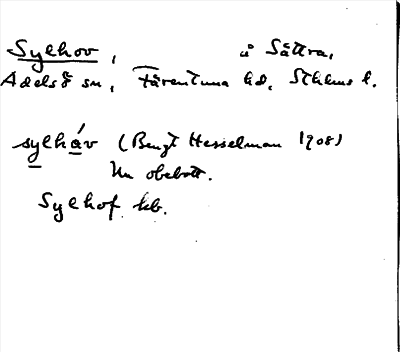 Sylhov, å Sättra,
Adelsö sn, Färentuna hd, Sthlms l.
sylháv (Bengt Hesselman 1908)
Nu obebott.
Sylhof kb.